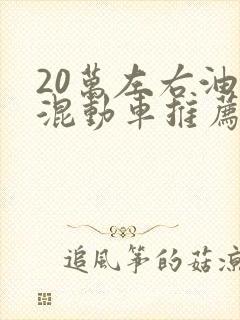 20萬左右油
混動車推薦
追風箏的菇涼